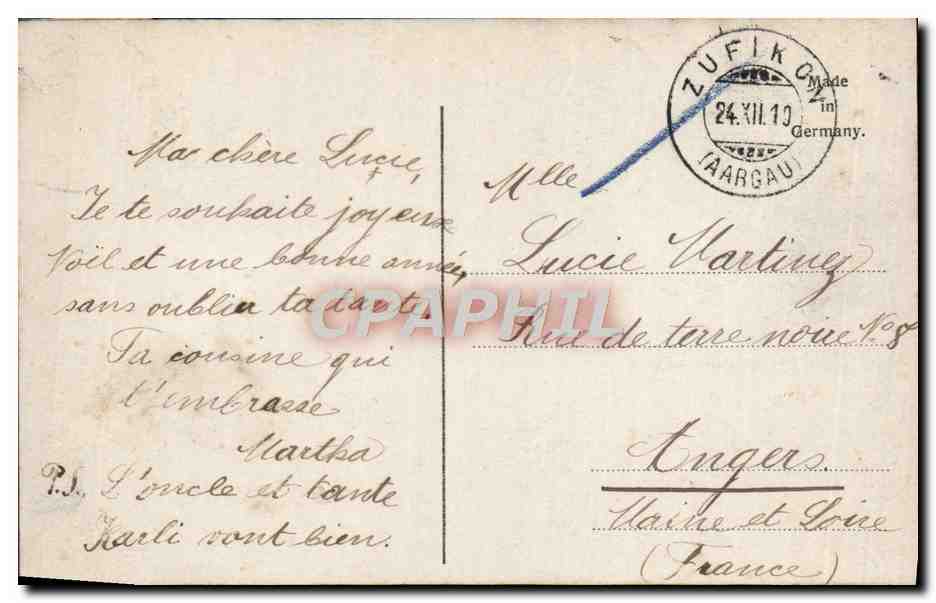 Ma chère Lucie,
Je te souhaite joyeux
Noël et une bonne année,
sans oublier ta tante.
Ta cousine qui
t'embrasse
Martha
P.S. L'oncle et tante
Karli vont bien.
ZUFIKON
24.XII.10
(AARGAU)
Made
in
Germany.
Mlle
Lucie Martinez
Rue de terre noire No 8
Angers.
Maine et Loire
(France)
CPAPHIL